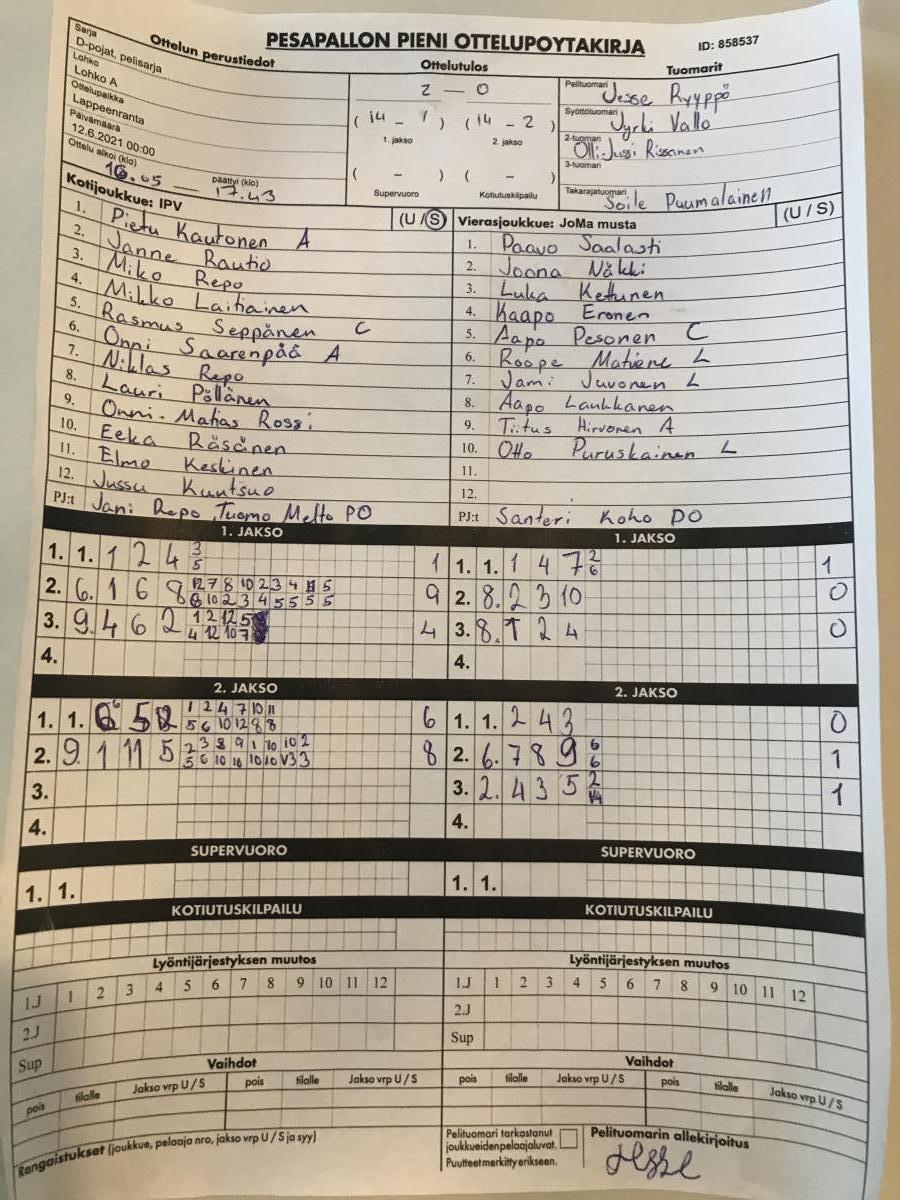 PESAPALLON PIENI OTTELUPOYTAKIRJA
ID: 858537
Ottelun perustiedot
Sarja
D-pojat, pelisarja
Lohko
Lohko A
Ottelupaikka
Lappeenranta
Päivämäärä
12.6.2021 00:00
Ottelu alkoi (klo) päättyi (klo)
16.05 — 17.43
Ottelutulos
2 — 0
(14 - 1) (14 - 2)
1. jakso 2. jakso
( - ) ( - )
Supervuoro Kotiutuskilpailu
Tuomarit
Pelituomari
Jesse Ryyppö
Syöttötuomari
Jyrki Vallo
2-tuomari
Olli-Jussi Rissanen
3-tuomari
Takarajatuomari
Soile Puumalainen
Kotijoukkue: IPV (U / S)
1. Pietu Kautonen A
2. Janne Rautio
3. Miko Repo
4. Mikko Laitiainen
5. Rasmus Seppänen C
6. Onni Saarenpää A
7. Niklas Repo
8. Lauri Pöllänen
9. Onni-Matias Rossi
10. Eeka Räsänen
11. Elmo Keskinen
12. Jussu Kuntsuo
PJ:t Jani Repo, Tuomo Metto PO
Vierasjoukkue: JoMa musta (U / S)
1. Paavo Saalasti
2. Joona Näkki
3. Luka Kettunen
4. Kaapo Eronen
5. Aapo Pesonen C
6. Roope Matiene L
7. Jami Juvonen L
8. Aapo Laukkanen
9. Tiitus Hirvonen A
10. Otto Puruskainen L
11.
12.
PJ:t Santeri Koho PO
1. JAKSO
1. 1. 1 2 4 3 1
5
2. 6. 1 6 8 12 7 8 10 2 3 4 11 5 9
8 10 2 3 4 5 5 5 5
3. 9. 4 6 2 1 2 12 5 4
4 12 10 7
4.
1. JAKSO
1. 1. 1 4 7 2 1
6
2. 8. 2 3 10 0
3. 8. 1 2 4 0
4.
2. JAKSO
1. 1. 6 5 1 2 4 7 10 11 6
5 6 10 12 8 8
2. 9. 1 11 5 2 3 8 9 1 10 10 2 8
5 6 10 10 10 10 V3 3
3.
4.
2. JAKSO
1. 1. 2 4 3 0
2. 6. 7 8 9 6 1
6
3. 2. 4 3 5 2 1
4.
SUPERVUORO
1. 1.
SUPERVUORO
1. 1.
KOTIUTUSKILPAILU
KOTIUTUSKILPAILU
Lyöntijärjestyksen muutos
1.J 1 2 3 4 5 6 7 8 9 10 11 12
2.J
Sup
Lyöntijärjestyksen muutos
1.J 1 2 3 4 5 6 7 8 9 10 11 12
2.J
Sup
Vaihdot
pois tilalle Jakso vrp U / S pois tilalle Jakso vrp U / S
Vaihdot
pois tilalle Jakso vrp U / S pois tilalle Jakso vrp U / S
Rangaistukset (joukkue, pelaaja nro, jakso vrp U / S ja syy)
Pelituomari tarkastanut
joukkueidenpelaajaluvat.
Puutteet merkitty erikseen.
Pelituomarin allekirjoitus
Jesse